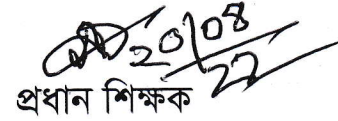 20/08
22
প্রধান শিক্ষক